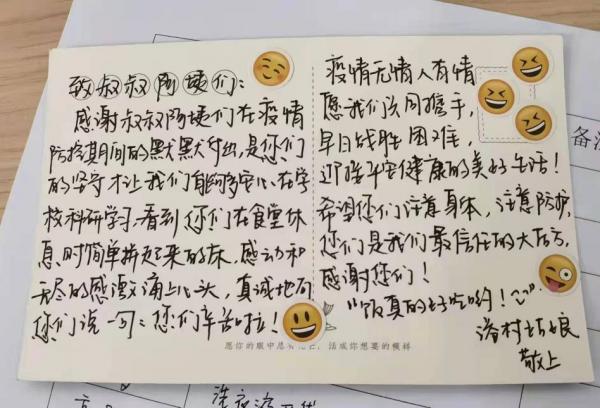 致叔叔阿姨们：
感谢叔叔阿姨们在疫情
防控期间的默默付出，是您们
的坚守才让我们能够安心在学
校科研学习，看到您们在食堂休
息时简单拼起来的床，感动和
无尽的感激涌上心头，真诚地向
您们说一句：您们辛苦啦！
疫情无情人有情
愿我们共同携手，
早日战胜困难，
迎接平安健康的美好生活！
希望您们注意身体，注意防护，
您们是我们最信任的大后方，
感谢您们！
“饭真的好吃哟！”
洛村姑娘
敬上
愿你的眼中总有光芒，活成你想要的模样
备注